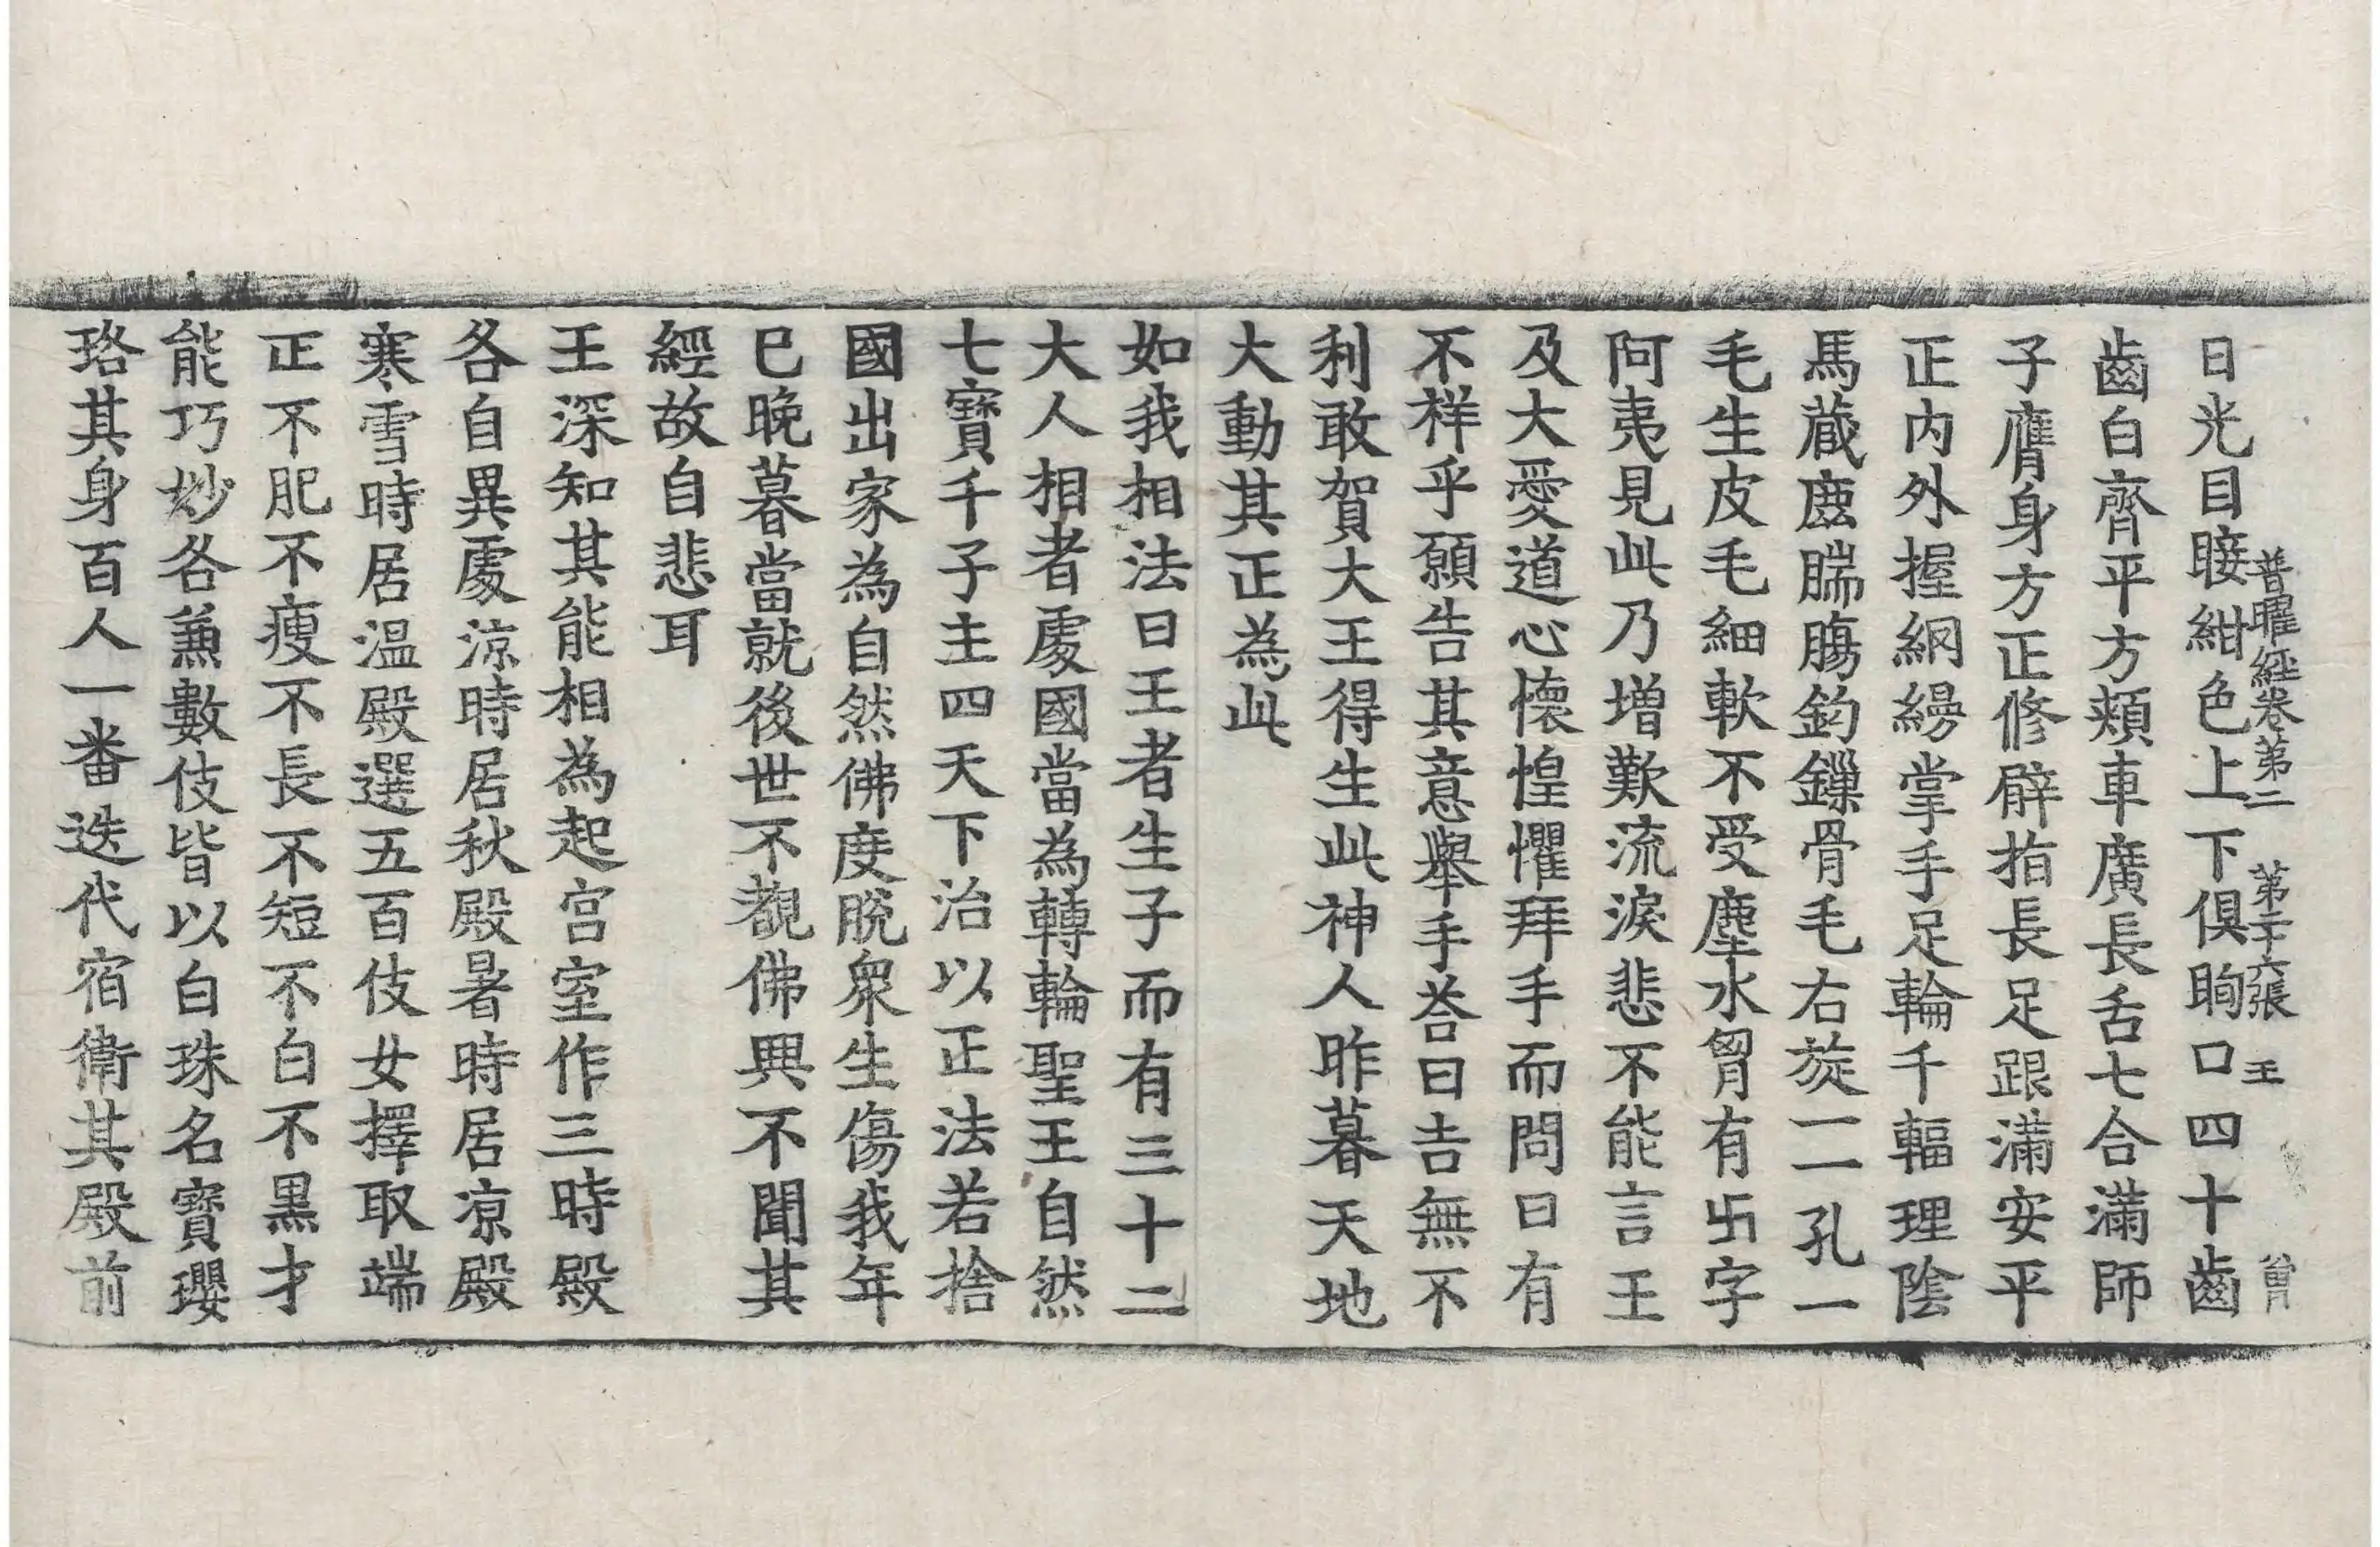 普曜經卷第二 第二十六張 王
日光目睫紺色上下俱眴口四十齒
齒白齊平方頰車廣長舌七合滿師
子膺身方正修臂指長足跟滿安平
正內外握網縵掌手足輪千輻理陰
馬藏鹿腨膓鈎鏁骨毛右旋一一孔一
毛生皮毛細軟不受塵水胷有卐字
阿夷見此乃增歎流淚悲不能言王
及大愛道心懷惶懼拜手而問曰有
不祥乎願告其意舉手荅曰吉無不
利敢賀大王得生此神人昨暮天地
大動其正為此
如我相法曰王者生子而有三十二
大人相者處國當為轉輪聖王自然
七寶千子主四天下治以正法若捨
國出家為自然佛度脫衆生傷我年
已晚暮當就後世不覩佛興不聞其
經故自悲耳
王深知其能相為起宮室作三時殿
各自異處涼時居秋殿暑時居凉殿
寒雪時居温殿選五百伎女擇取端
正不肥不瘦不長不短不白不黑才
能巧妙各兼數伎皆以白珠名寶瓔
珞其身百人一番迭代宿衛其殿前